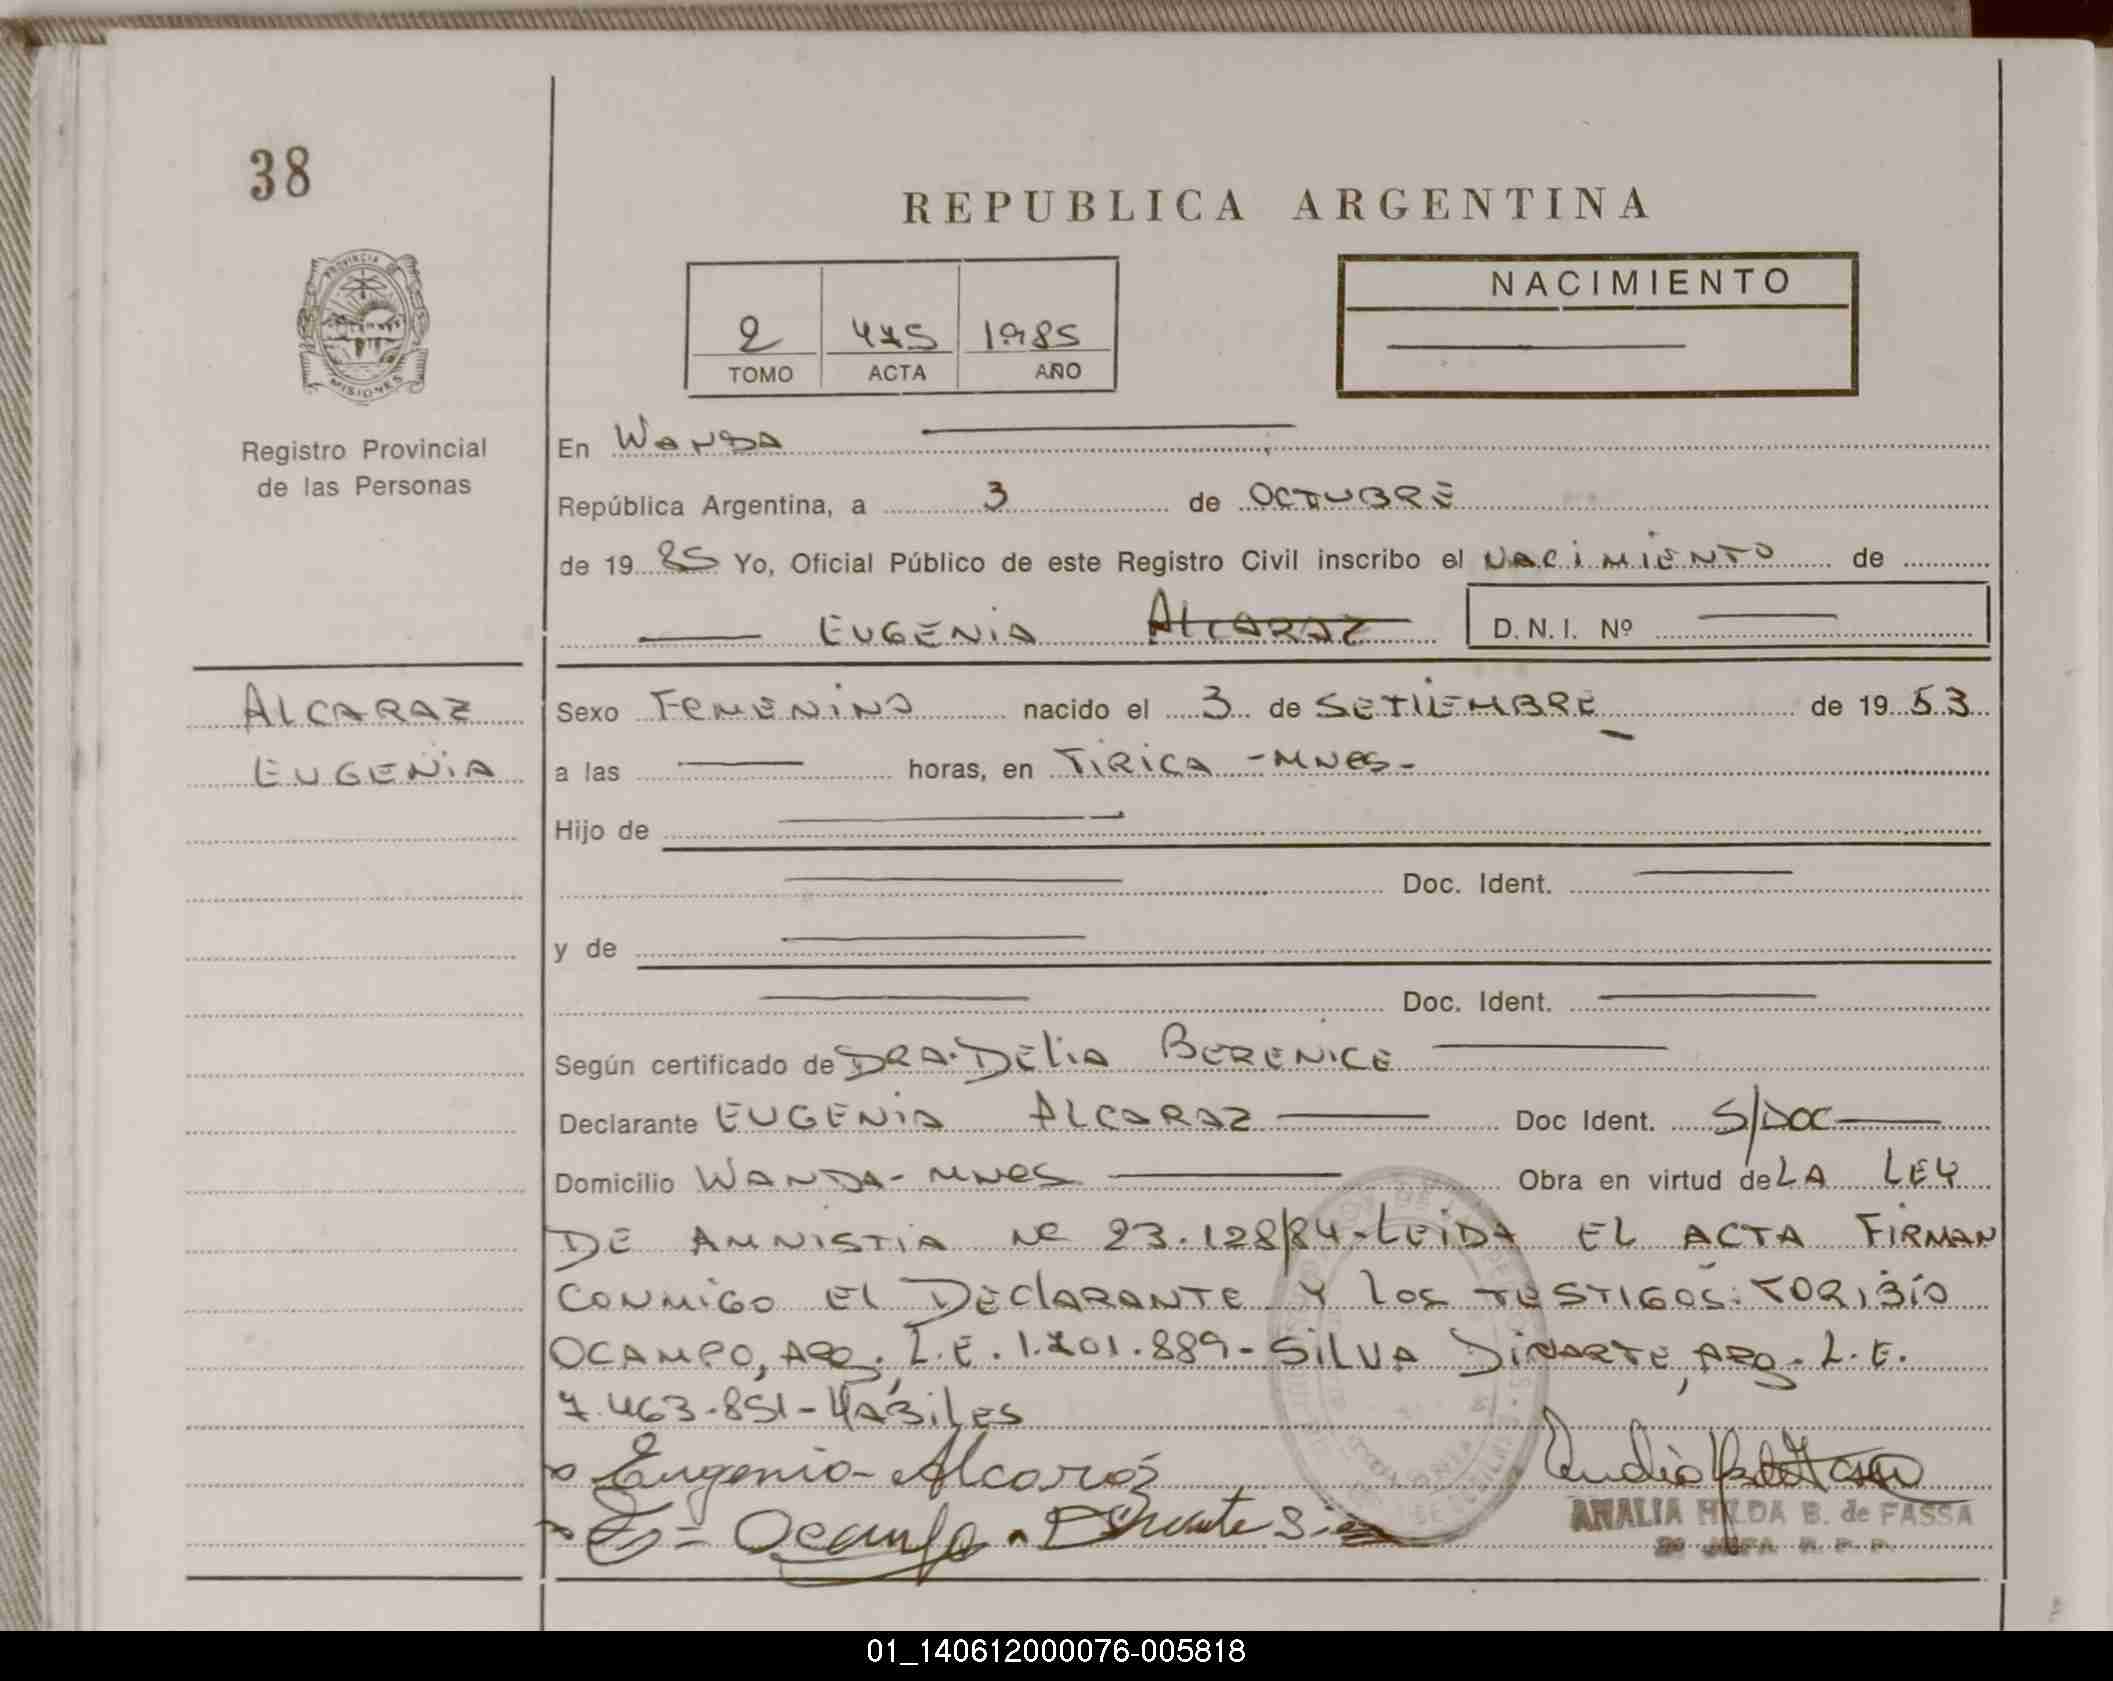 38
REPUBLICA ARGENTINA
NACIMIENTO
2 475 1985
TOMO ACTA AÑO
PROVINCIA DE
MISIONES
Registro Provincial
de las Personas
En WANDA
República Argentina, a 3 de OCTUBRE
de 19 85 Yo, Oficial Público de este Registro Civil inscribo el NACIMIENTO de
EUGENIA ALCARAZ D.N.I. Nº
ALCARAZ
EUGENIA
Sexo FEMENINO nacido el 3 de SETIEMBRE de 19 53
a las horas, en TIRICA - MNES -
Hijo de
Doc. Ident.
y de
Doc. Ident.
Según certificado de DRA. DELIA BERENICE
Declarante EUGENIA ALCARAZ Doc Ident. S/DOC
Domicilio WANDA - MNES Obra en virtud de LA LEY
DE AMNISTIA Nº 23.128/84 - LEIDA EL ACTA FIRMAN
CONMIGO El DEClARANTE Y los TESTIGOS: TORIBIO
OCAMPO, ARG. L.E. 1.701.889 - SILVA DINARTE, ARG. L.E.
7.463.851 - HABILES
Eugenia Alcaraz
Ocampo
ANALIA HILDA B. de FASSA
01_140612000076-005818